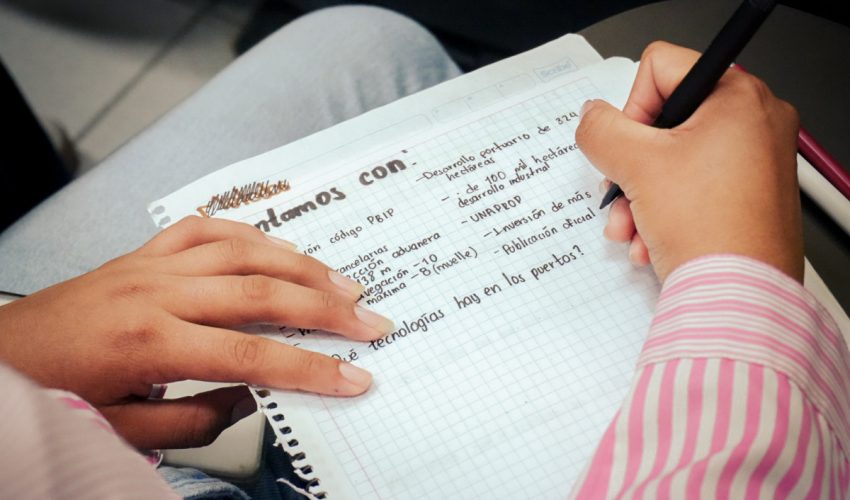 Scribe
ntamos con:
ión código PBIP
cancelarias
cción aduanera
38 m
vegación - 10
máxima - 8 (muelle)
- Desarrollo portuario de 324
hectáreas
- ¡de 100 mil hectáre
desarrollo industrial
- UNAPROP
- Inversión de más
- Publicación oficial
Qué tecnologías hay en los puertos?